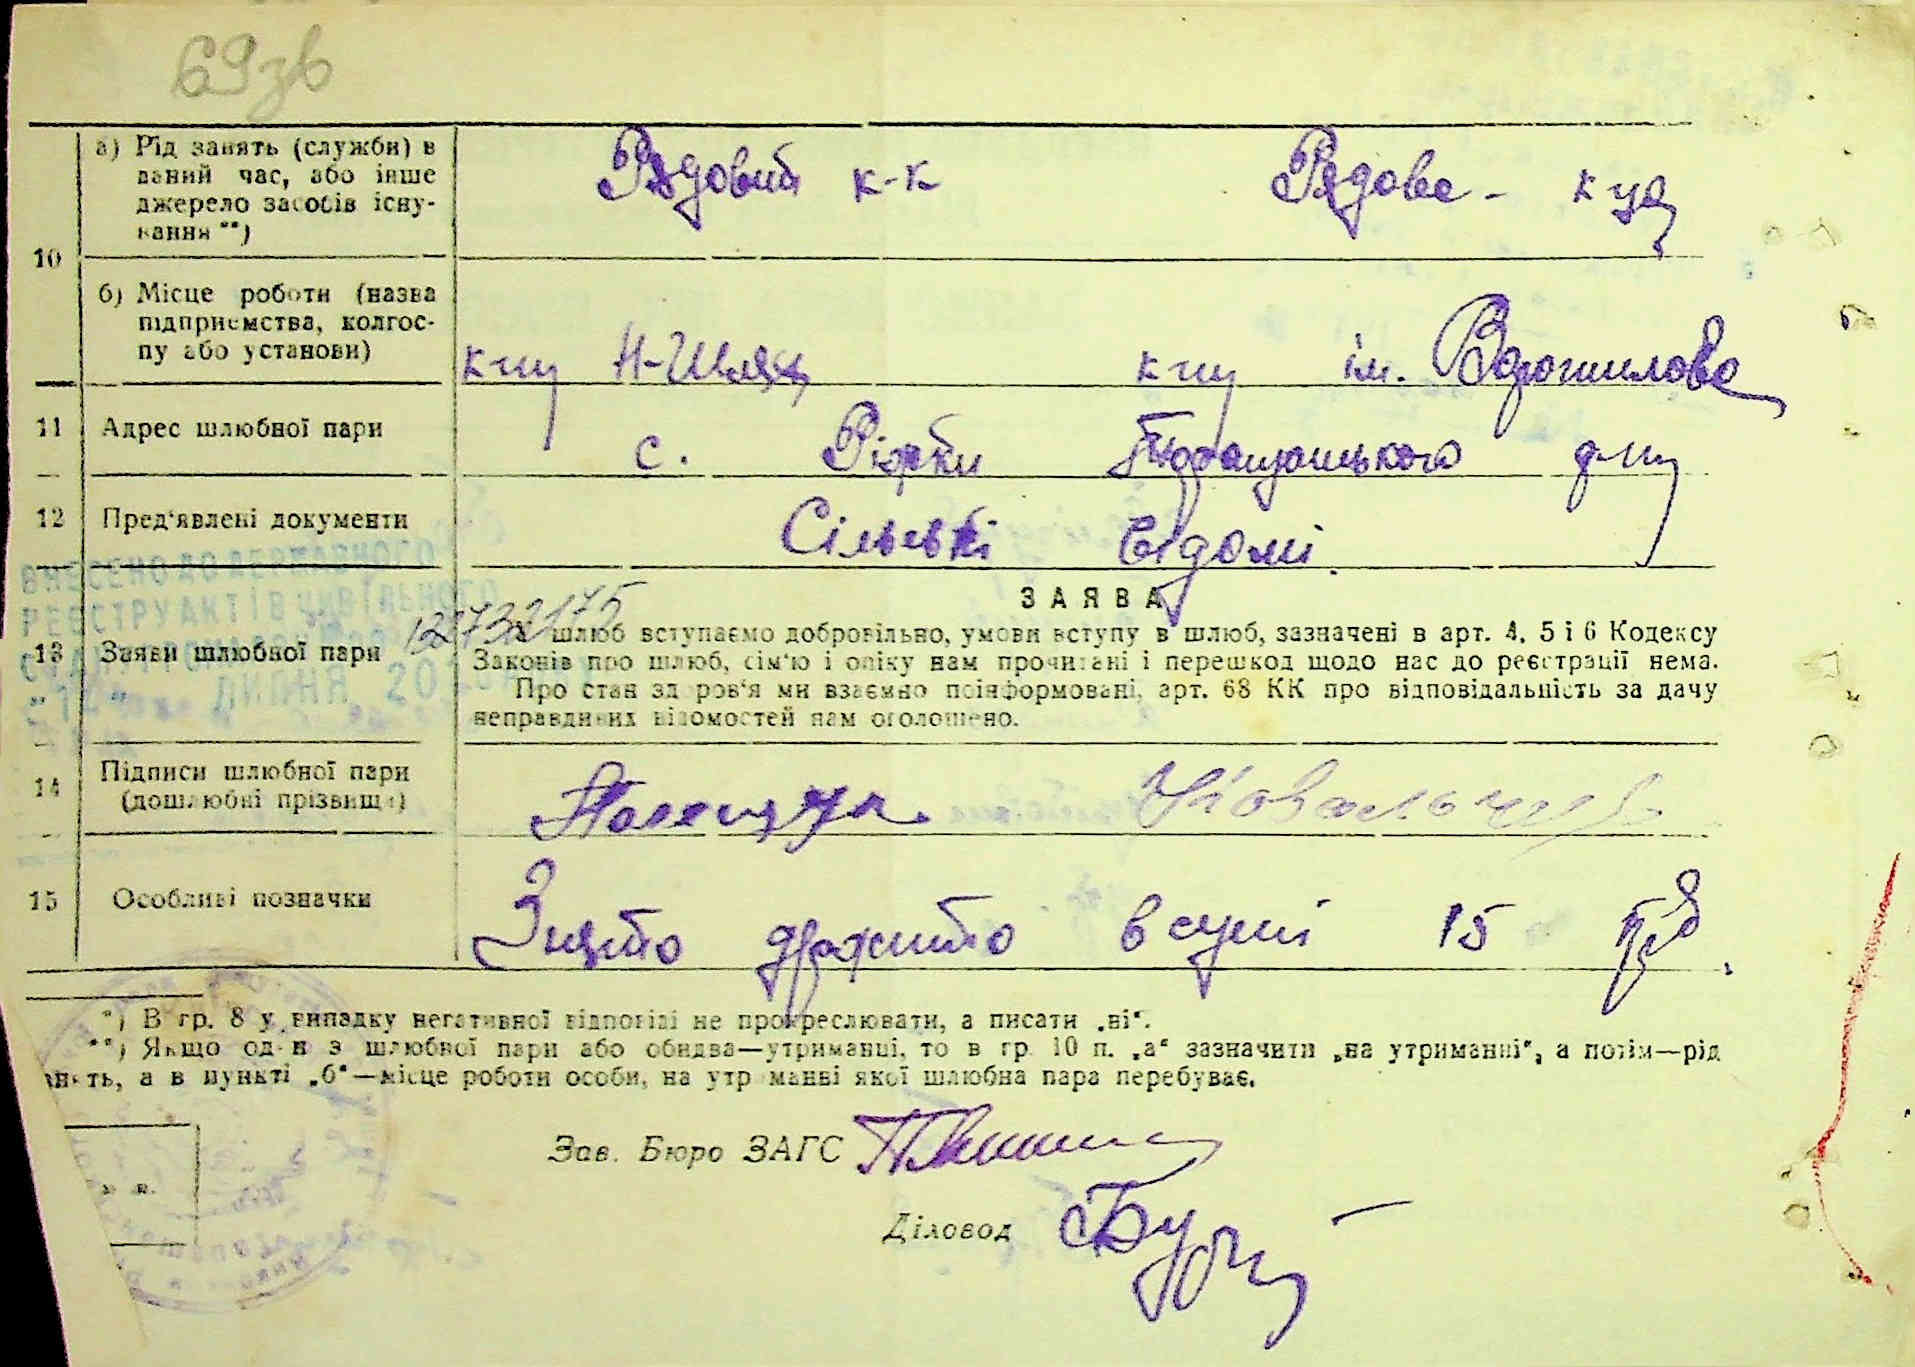 69зв
а) Рід занять (служби) в
даний час, або інше
джерело засобів існу-
вання **)
Рядовий к-к
Рядова - к-ця
10
б) Місце роботи (назва
підприємства, колгос-
пу або установи)
к-пу Н-Шлях
к-пу ім. Ворошилова
11 Адрес шлюбної пари
с. р-ну
12 Пред'явлені документи
Сільські відомі.
ВНЕСЕНО ДО ДЕРЖАВНОГО
РЕЄСТРУ АКТІВ ЦИВІЛЬНОГО
СТАНУ ГРОМАДЯН
"12" ЛИПНЯ 20
122732175
ЗАЯВА
13 Заяви шлюбної пари
В шлюб вступаємо добровільно, умови вступу в шлюб, зазначені в арт. 4, 5 і 6 Кодексу
Законів про шлюб, сім'ю і опіку нам прочитані і перешкод щодо нас до реєстрації нема.
Про стан здоров'я ми взаємно поінформовані, арт. 68 КК про відповідальність за дачу
неправдивих відомостей нам оголошено.
14 Підписи шлюбної пари
(дошлюбні прізвища)
Полещук
Ковальчук
15 Особливі позначки
Знято држмито в сумі 15 крб.
*) В гр. 8 у випадку негативної відповіді не прокреслювати, а писати „ні“.
**) Якщо один з шлюбної пари або обидва—утриманці, то в гр. 10 п. „а“ зазначити „на утриманні“, а потім—рід
занять, а в пункті „б“—місце роботи особи, на утриманні якої шлюбна пара перебуває.
Зав. Бюро ЗАГС
Діловод